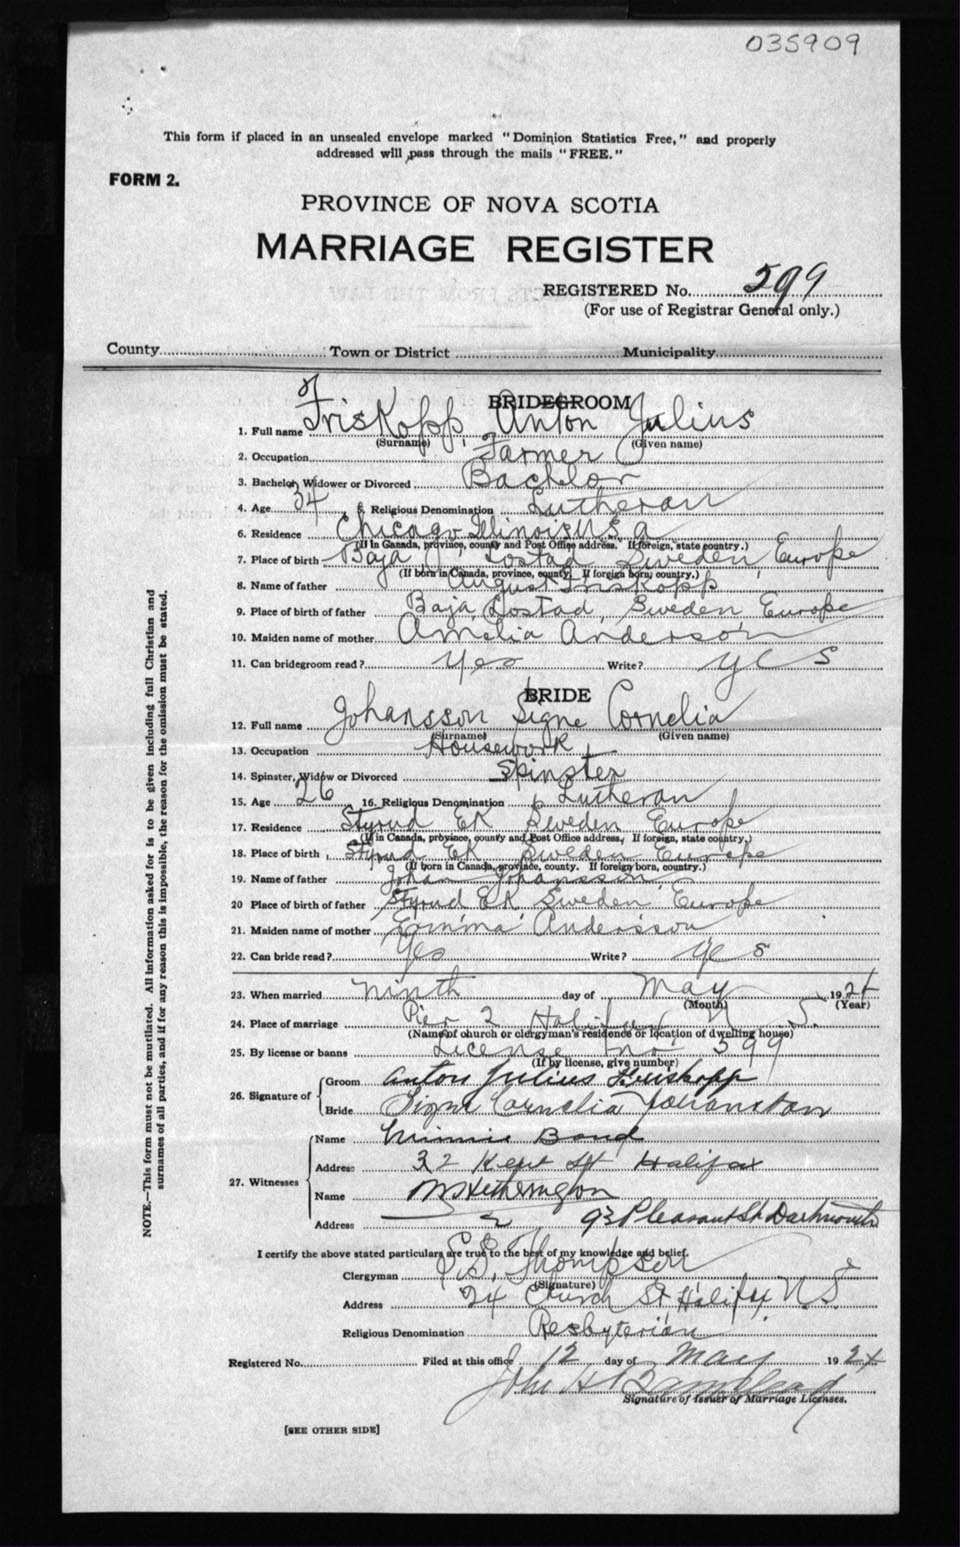 035909
This form if placed in an unsealed envelope marked "Dominion Statistics Free," and properly
addressed will pass through the mails "FREE."
FORM 2.
PROVINCE OF NOVA SCOTIA
MARRIAGE REGISTER
REGISTERED No. 599
(For use of Registrar General only.)
County Town or District Municipality
BRIDEGROOM
of
1. Full name Friskopp Anton Julius
(Surname) (Given name)
2. Occupation Farmer
3. Bachelor, Widower or Divorced Bachelor
4. Age 34 5. Religious Denomination Lutheran
6. Residence Chicago Illinois U.S.a
(If in Canada, province, county and Post Office address. If foreign, state country.)
7. Place of birth Baja Lostad Sweden, Europe
(If born in Canada, province, county. If foreign born, country.)
8. Name of father August Friskopp
9. Place of birth of father Baja, Lostad, Sweden, Europe
10. Maiden name of mother Amelia Anderson
11. Can bridegroom read? Yes Write? Yes
BRIDE
12. Full name Johansson Signe Cornelia
(Surname) (Given name)
13. Occupation Housework
14. Spinster, Widow or Divorced Spinster
15. Age 26 16. Religious Denomination Lutheran
17. Residence Styrud EK Sweden Europe
(If in Canada, province, county and Post Office address. If foreign, state country.)
18. Place of birth Styrud EK Sweden Europe
(If born in Canada, province, county. If foreign born, country.)
19. Name of father Johan Johansson
20 Place of birth of father Styrud EK Sweden Europe
21. Maiden name of mother Emma Andersson
22. Can bride read? Yes Write? Yes
23. When married ninth day of May 1924
(Month) (Year)
24. Place of marriage Pier 2 Halifax N.S.
(Name of church or clergyman's residence or location of dwelling house)
25. By license or banns License no 599
(If by license, give number)
26. Signature of
Groom Anton Julius Friskopp
Bride Signe Cornelia Johansson
27. Witnesses
Name Minnie Bond
Address 32 Kent St Halifax
Name Hetherington
Address 93 Pleasant St. Dartmouth
I certify the above stated particulars are true to the best of my knowledge and belief.
Clergyman Thompson
(Signature)
Address 24 Church St Halifax N.S.
Religious Denomination Presbyterian
Registered No. Filed at this office 12 day of May 1924
John H
Signature of Issuer of Marriage Licenses.
[SEE OTHER SIDE]
NOTE.—This form must not be mutilated. All information asked for is to be given including full Christian and
surnames of all parties, and if for any reason this is impossible, the reason for the omission must be stated.